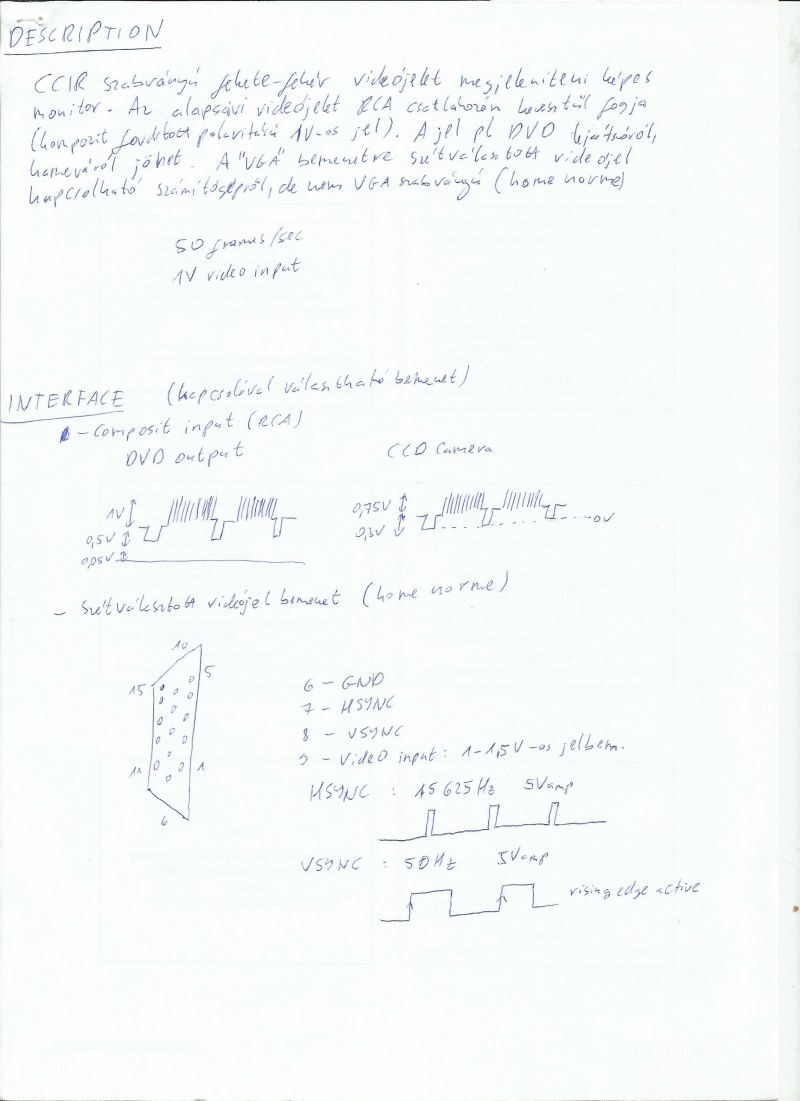 DESCRIPTION
CCIR szabványú fekete-fehér videójelet megjeleníteni képes
monitor. Az alapsávi videójelet RCA csatlakozón keresztül fogja
(kompozit fordított polaritású 1V-os jel). A jel pl DVD lejátszóról,
kameráról jöhet. A "VGA" bemenetre szétválasztott videojel
kapcsolható számítógépről, de nem VGA szabványú (home norme)
50 frames/sec
1V video input
INTERFACE (kapcsolóval választható bemenet)
- Composit input (RCA)
DVD output CCD Camera
1V 0,75V
0,5V 0,3V 0V
0,05V
- Szétválasztott videójel bemenet (home norme)
10
15 5
11 1
6
6 - GND
7 - HSYNC
8 - VSYNC
9 - Video input: 1-1,5V-os jelbem.
HSYNC : 15625Hz 5Vamp
VSYNC : 50Hz 5Vamp
rising edge active